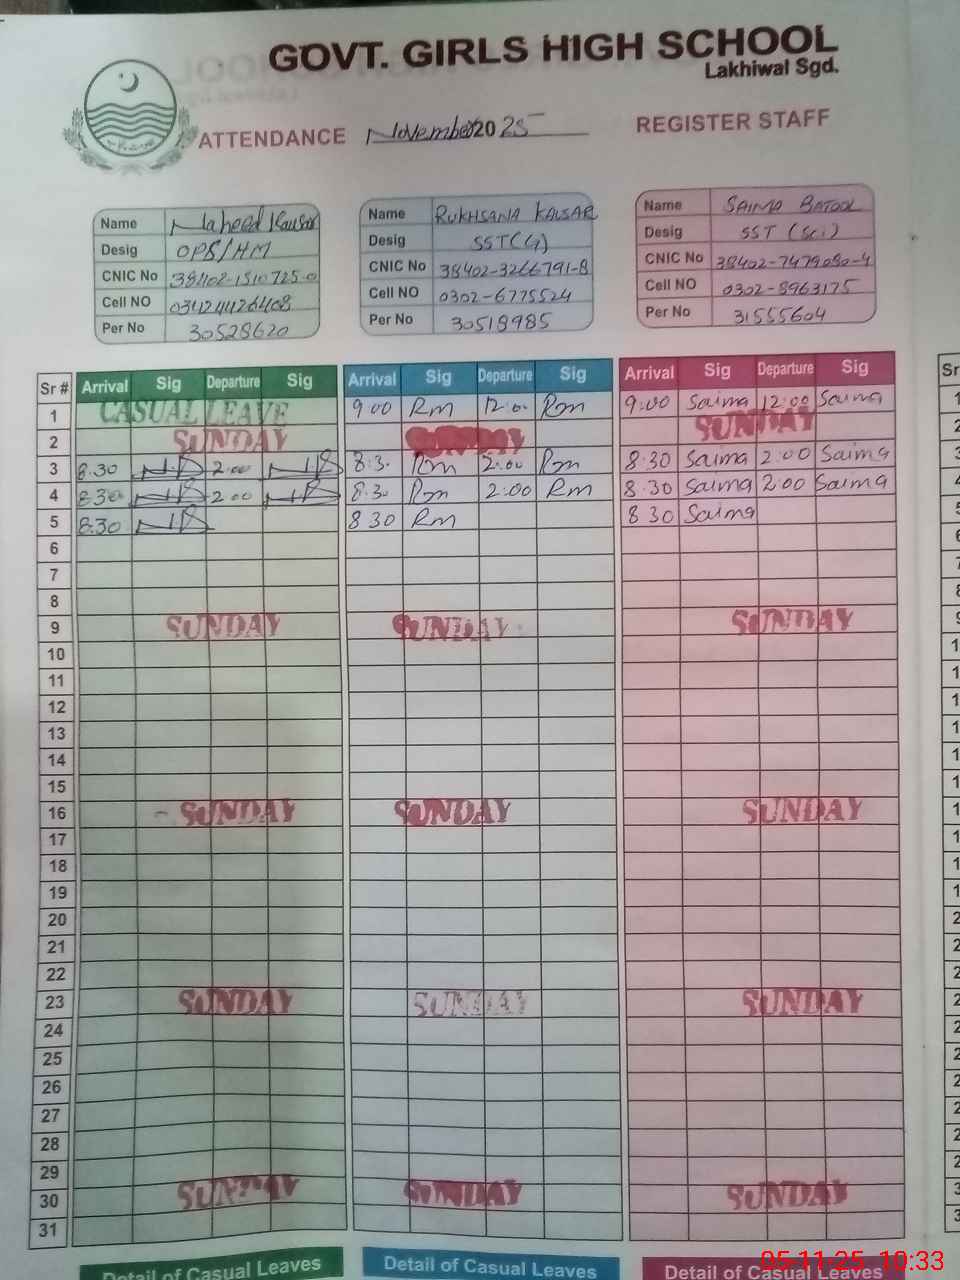 GOVT. GIRLS HIGH SCHOOL
Lakhiwal Sgd.
ATTENDANCE November 2025 REGISTER STAFF
Name Naheed Kausar
Desig OPS/HM
CNIC No 38402-1510725-0
Cell NO
Per No 30528620
Name RUKHSANA KAUSAR
Desig SST(G)
CNIC No 38402-3266791-8
Cell NO 0302-6775524
Per No 30518985
Name SAIMA BATOOL
Desig SST (Sci)
CNIC No 38402-7479080-4
Cell NO 0302-8963175
Per No 31555604
Sr # Arrival Sig Departure Sig Arrival Sig Departure Sig Arrival Sig Departure Sig Sr
1 CASUAL LEAVE 9 00 Rm 12.00 Rm 9:00 Saima 12:00 Saima 1
2 SUNDAY SUNDAY SUNDAY 2
3 8.30 2.00 8.3. Rm 2.00 Rm 8:30 Saima 2:00 Saima 3
4 8 30 2 00 8.30 Rm 2:00 Rm 8:30 Saima 2:00 Saima 4
5 8.30 8 30 Rm 8 30 Saima 5
6 6
7 7
8 8
9 SUNDAY SUNDAY SUNDAY 9
10 1
11 1
12 1
13 1
14 1
15 1
16 SUNDAY SUNDAY SUNDAY 1
17 1
18 1
19 1
20 2
21 2
22 2
23 SUNDAY SUNDAY SUNDAY 2
24 2
25 2
26 2
27 2
28 2
29 2
30 SUNDAY SUNDAY SUNDAY 3
31 3
Detail of Casual Leaves Detail of Casual Leaves Detail of Casual Leaves
05-11-25 10:33